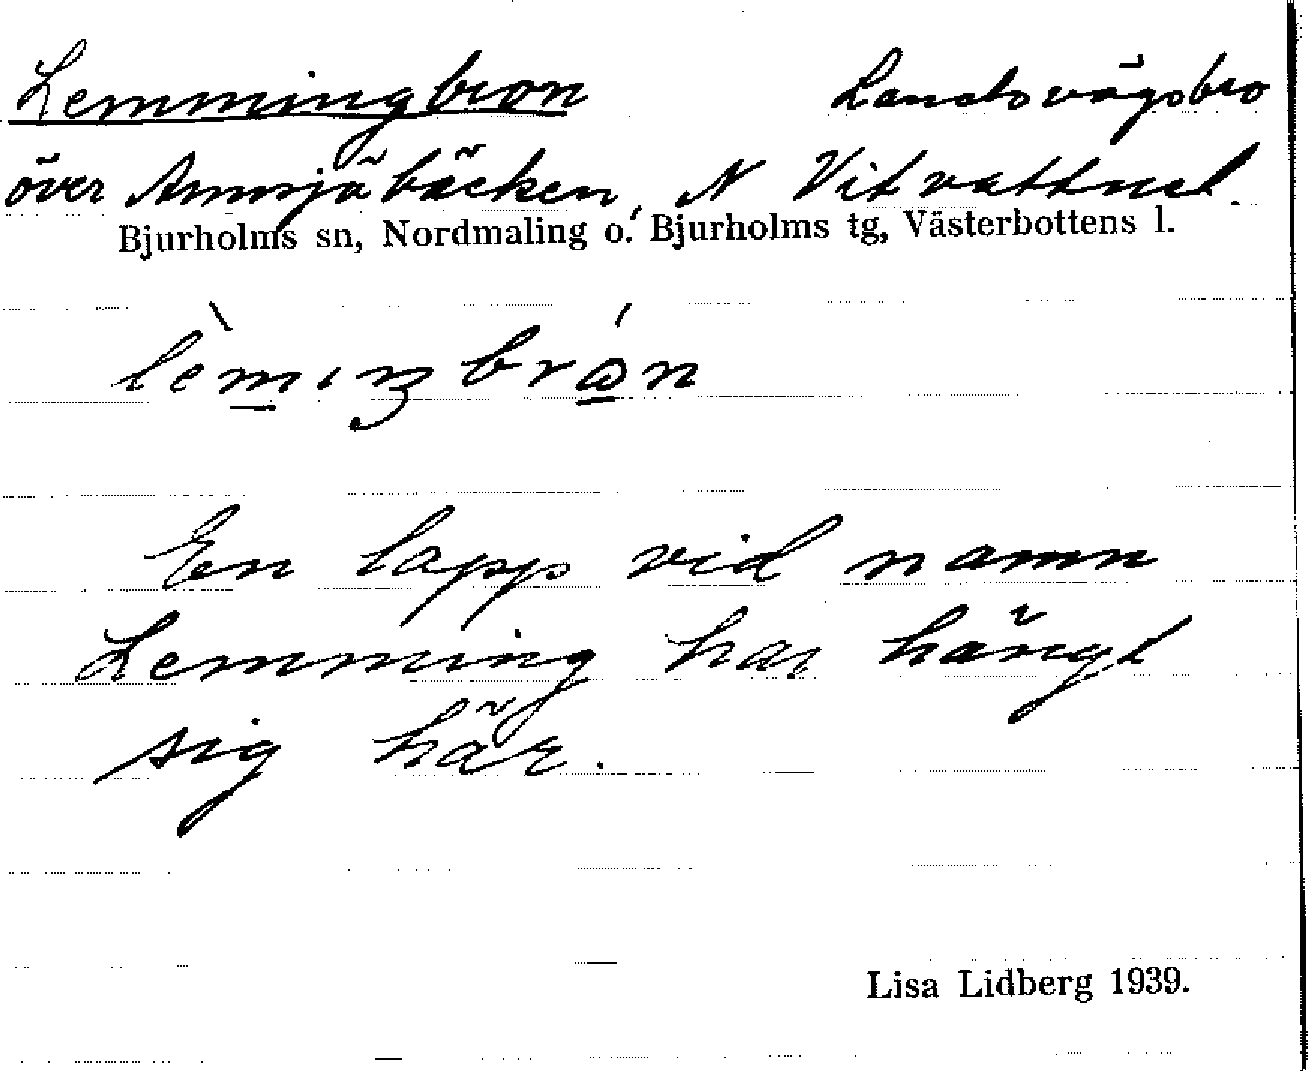 Lemmingbron Landsvägsbro
över Ammsjöbäcken, N Vitvattnet.
Bjurholms sn, Nordmaling o. Bjurholms tg, Västerbottens l.
En lapp vid namn
Lemming har hängt
sig här.
Lisa Lidberg 1939.